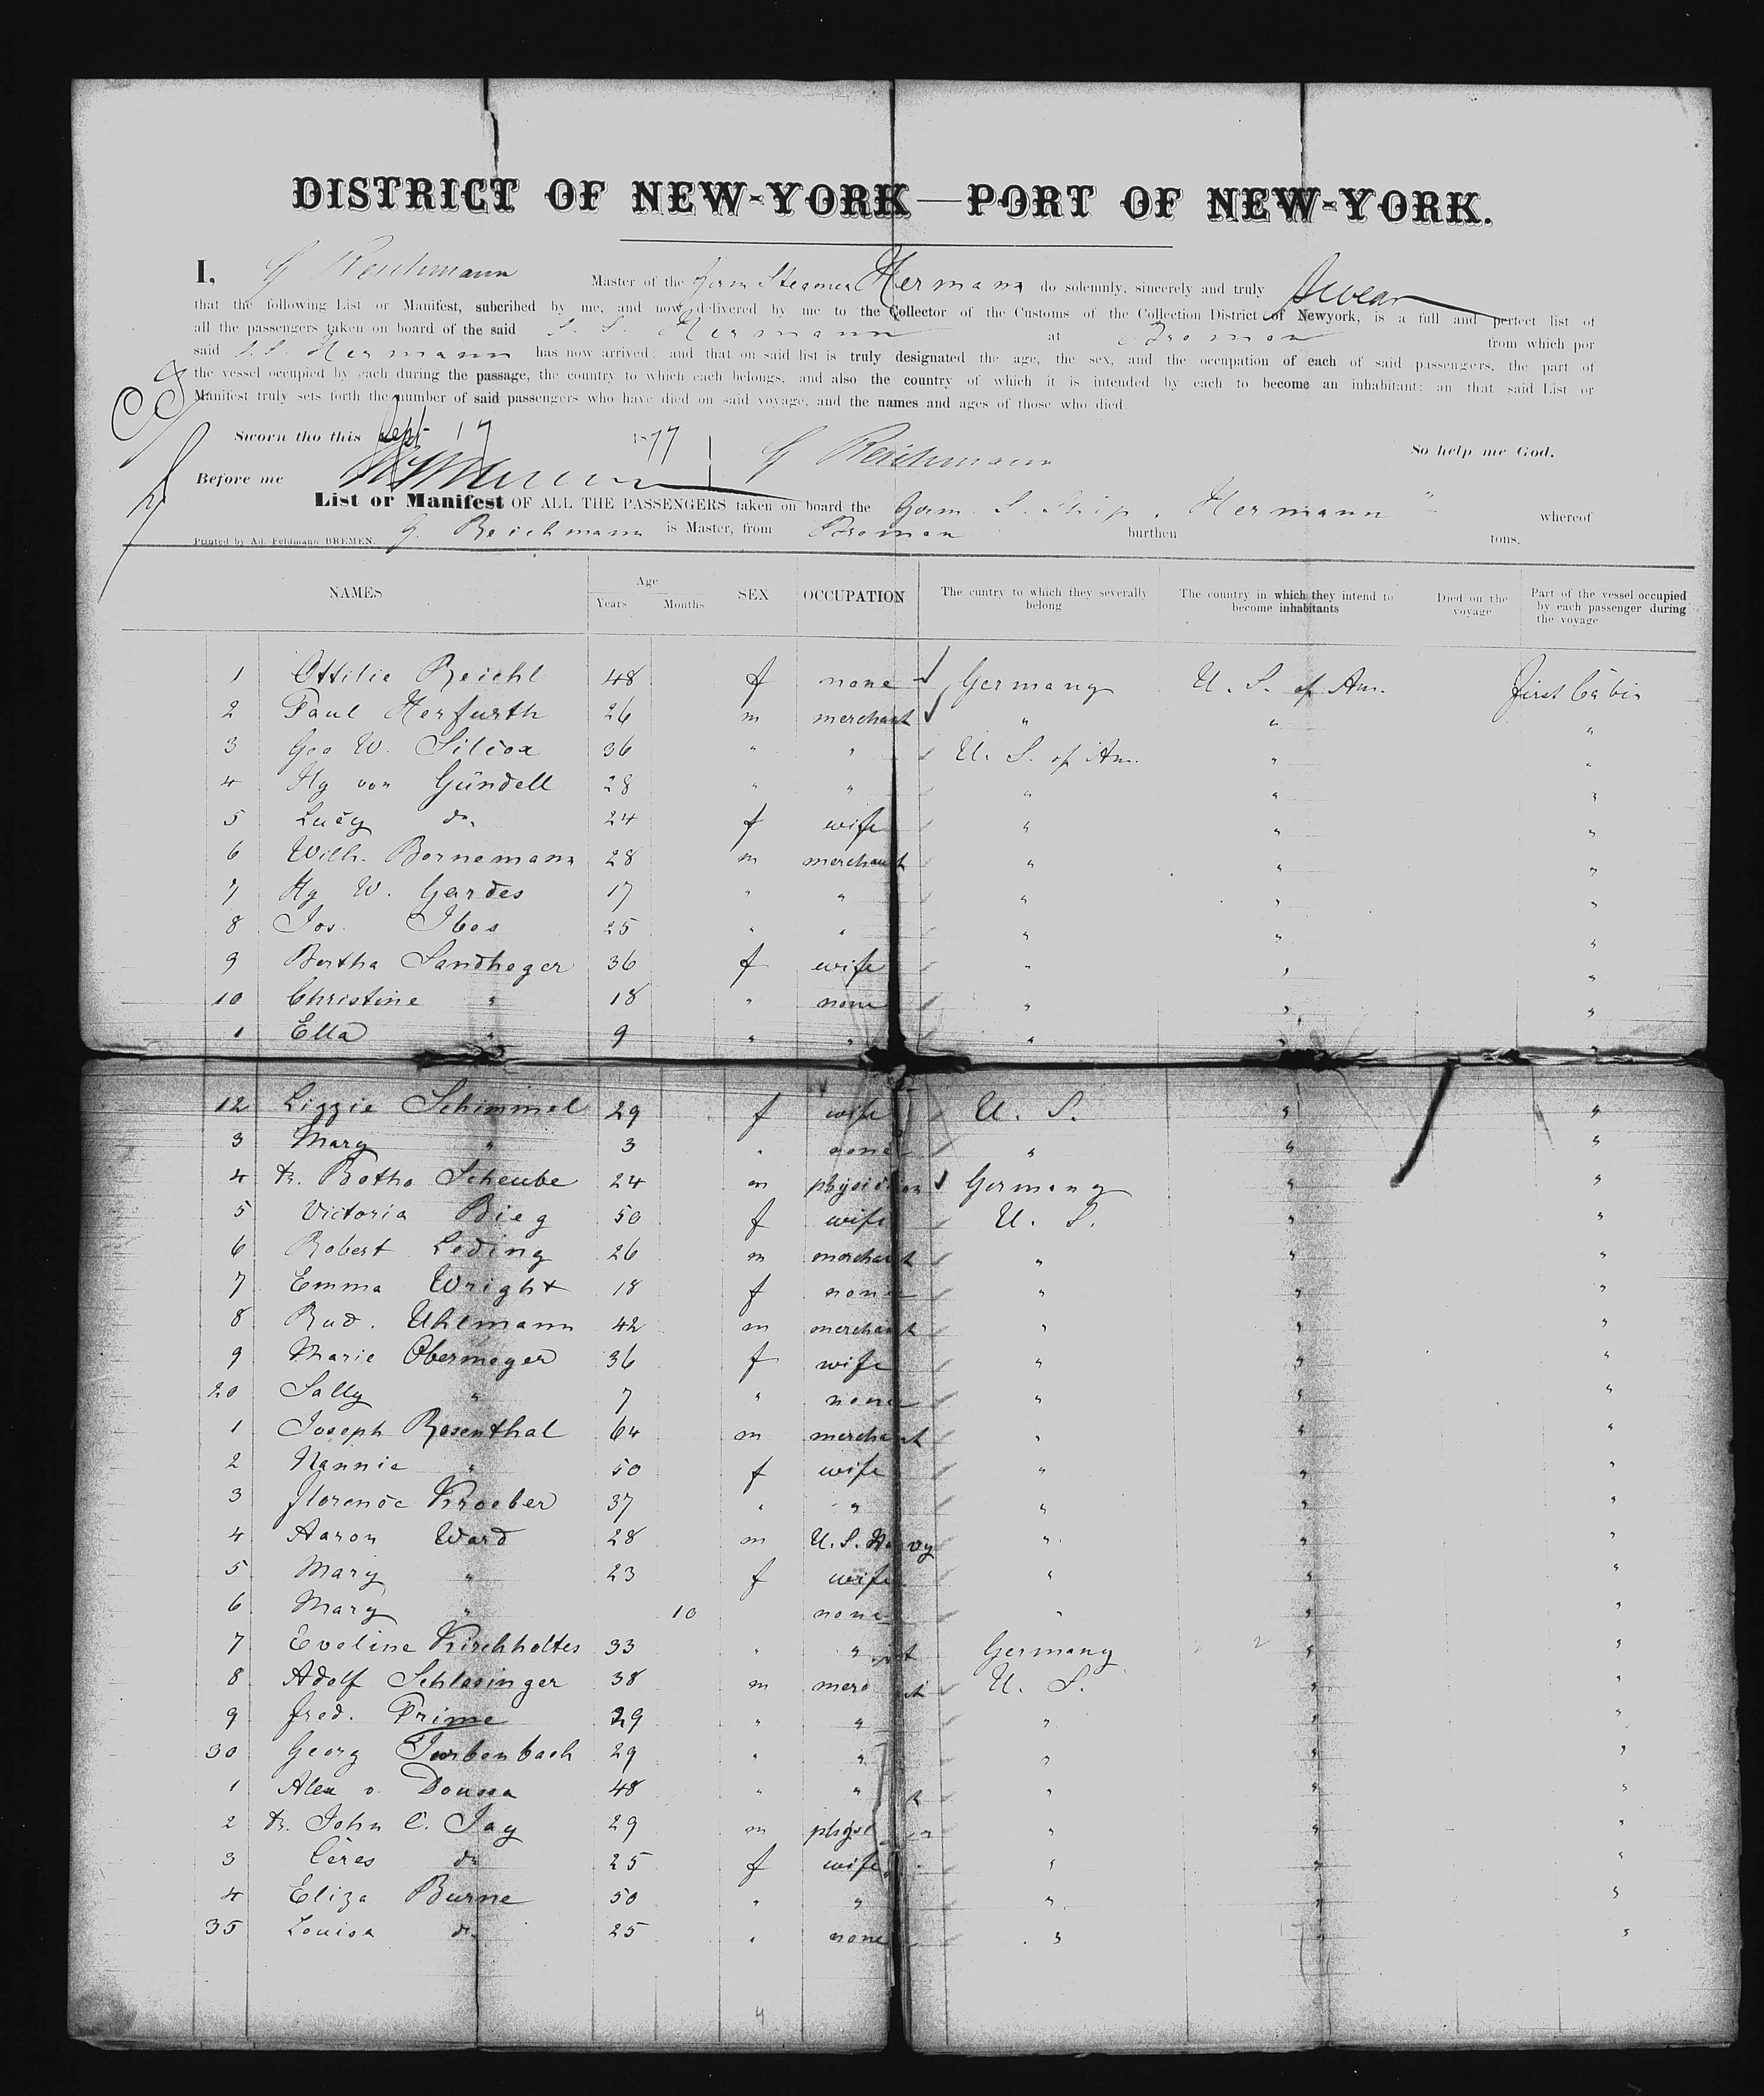 DISTRICT OF NEW-YORK—PORT OF NEW-YORK.
I, G Reichmann Master of the Germ Steamer Hermann do solemnly, sincerely and truly Swear
that the following List or Manifest, subcribed by me, and now delivered by me to the Collector of the Customs of the Collection District of Newyork, is a full and pertect list of
all the passengers taken on board of the said S. S. Hermann at Bremen from which por
said S.S. Hermann has now arrived; and that on said list is truly designated the age, the sex, and the occupation of each of said passengers, the part of
the vessel occupied by each during the passage, the country to which each belongs, and also the country of which it is intended by each to become an inhabitant; an that said List or
Manifest truly sets forth the number of said passengers who have died on said voyage, and the names and ages of those who died.
Sworn tho this Sept 17 1877 G Reichmann So help me God.
Before me
List or Manifest OF ALL THE PASSENGERS taken on board the Germ. S. Ship „ Hermann " whereof
G. Reichmann is Master, from Bremen burthen tons.
Printed by Ad. Feldmann BREMEN.
NAMES Age Years Months SEX OCCUPATION The cuntry to which they severally belong The country in which they intend to become inhabitants Died on the voyage Part of the vessel occupied by each passenger during the voyage
1 Ottilie Reichl 48 f none Germany U. S. of Am. first Cabin
2 Paul Herfurth 26 m merchant " " "
3 Geo W. Silcox 36 " " U. S. of Am. " "
4 Hy von Gündell 28 " " " " "
5 Lucy do. 24 f wife " " "
6 Wilh. Bornemann 28 m merchant " " "
7 Hy W. Gerdes 17 " " " " "
8 Jos. Ibos 25 " " " " "
9 Bertha Sandheger 36 f wife " " "
10 Christine " 18 " none " " "
1 Ella " 9 " " " "
12 Lizzie Schimmel 29 f wife U. S. " "
3 Mary " 3 " none " " "
4 Dr. Botho Scheube 24 m physician Germany " "
5 Victoria Bieg 50 f wife U. S. " "
6 Robert Leding 26 m merchant " " "
7 Emma Wright 18 f none " " "
8 Rud. Uhlmann 42 m merchant " " "
9 Marie Obermeyer 36 f wife " " "
20 Sally " 7 " none " " "
1 Joseph Rosenthal 64 m merchant " " "
2 Nannie " 50 f wife " " "
3 Florence Kroeber 37 " " " " "
4 Aaron Ward 28 m U.S. Navy " " "
5 Mary " 23 f wife " " "
6 Mary " 10 none " " "
7 Eveline Kirchholtes 33 " " Germany " "
8 Adolf Schlesinger 38 m merc U. S. " "
9 Fred. Prime 29 " " " " "
30 Georg 29 " " " " "
1 Alex v. Doussa 48 " " " " "
2 Dr. John C. Jay 29 m physi " " "
3 Ceres do 25 f wife " " "
4 Eliza Burne 50 " " " " "
35 Louisa do. 25 " none " " "
4